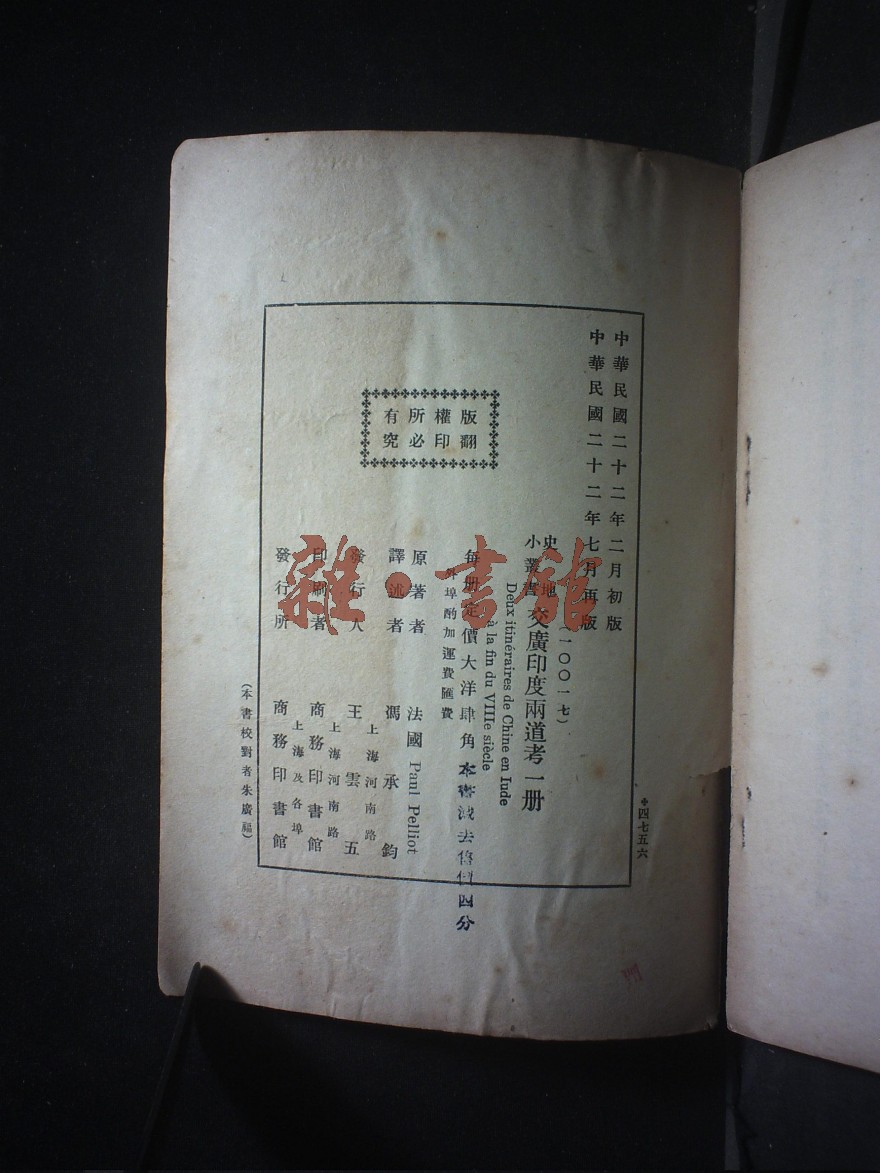 中華民國二十二年二月初版
中華民國二十二年七月再版
❖四七五六
(一〇〇一七)
史地
小叢書
交廣印度兩道考一册
Deux itinéraires de Chine en Iude
à la fin du VIIIe siècle
每册定價大洋肆角
外埠酌加運費匯費
售價四分
版權所有
翻印必究
原著者 法國 Paul Pelliot
譯述者 馮承鈞
上海河南路
發行人 王雲五
上海河南路
印刷者 商務印書館
上海及各埠
發行所 商務印書館
(本書校對者朱廣福)
雜·書館